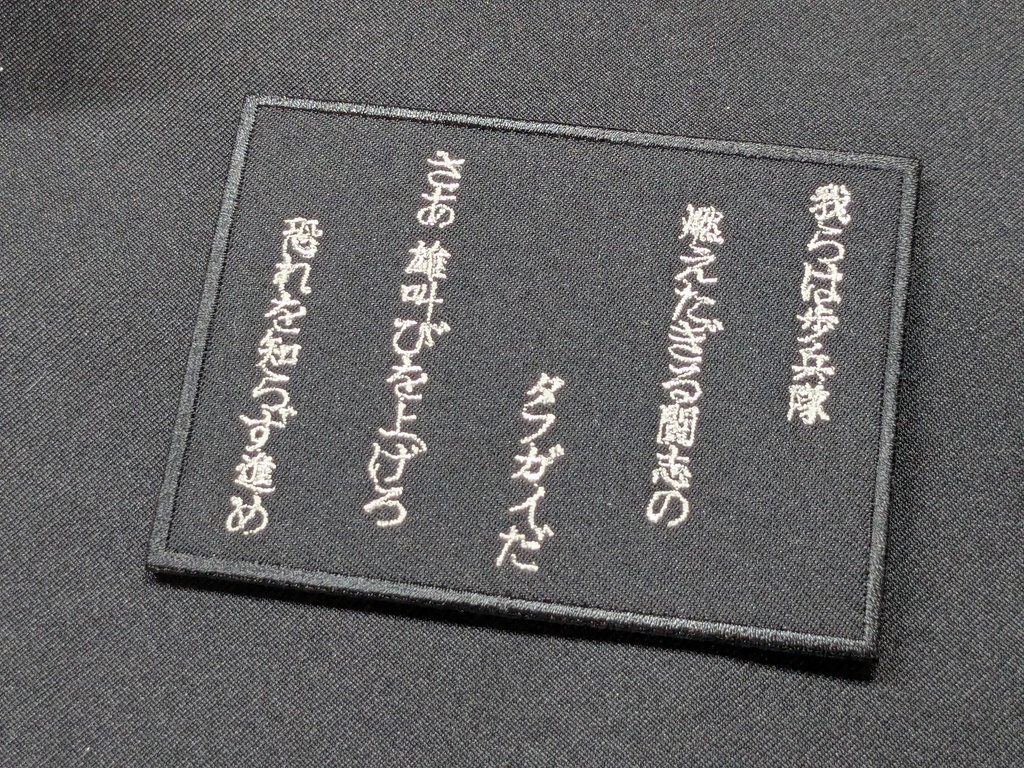 我らは歩兵隊
燃えたぎる闘志の
タフガイだ
さあ 雄叫びを上げろ
恐れを知らず進め